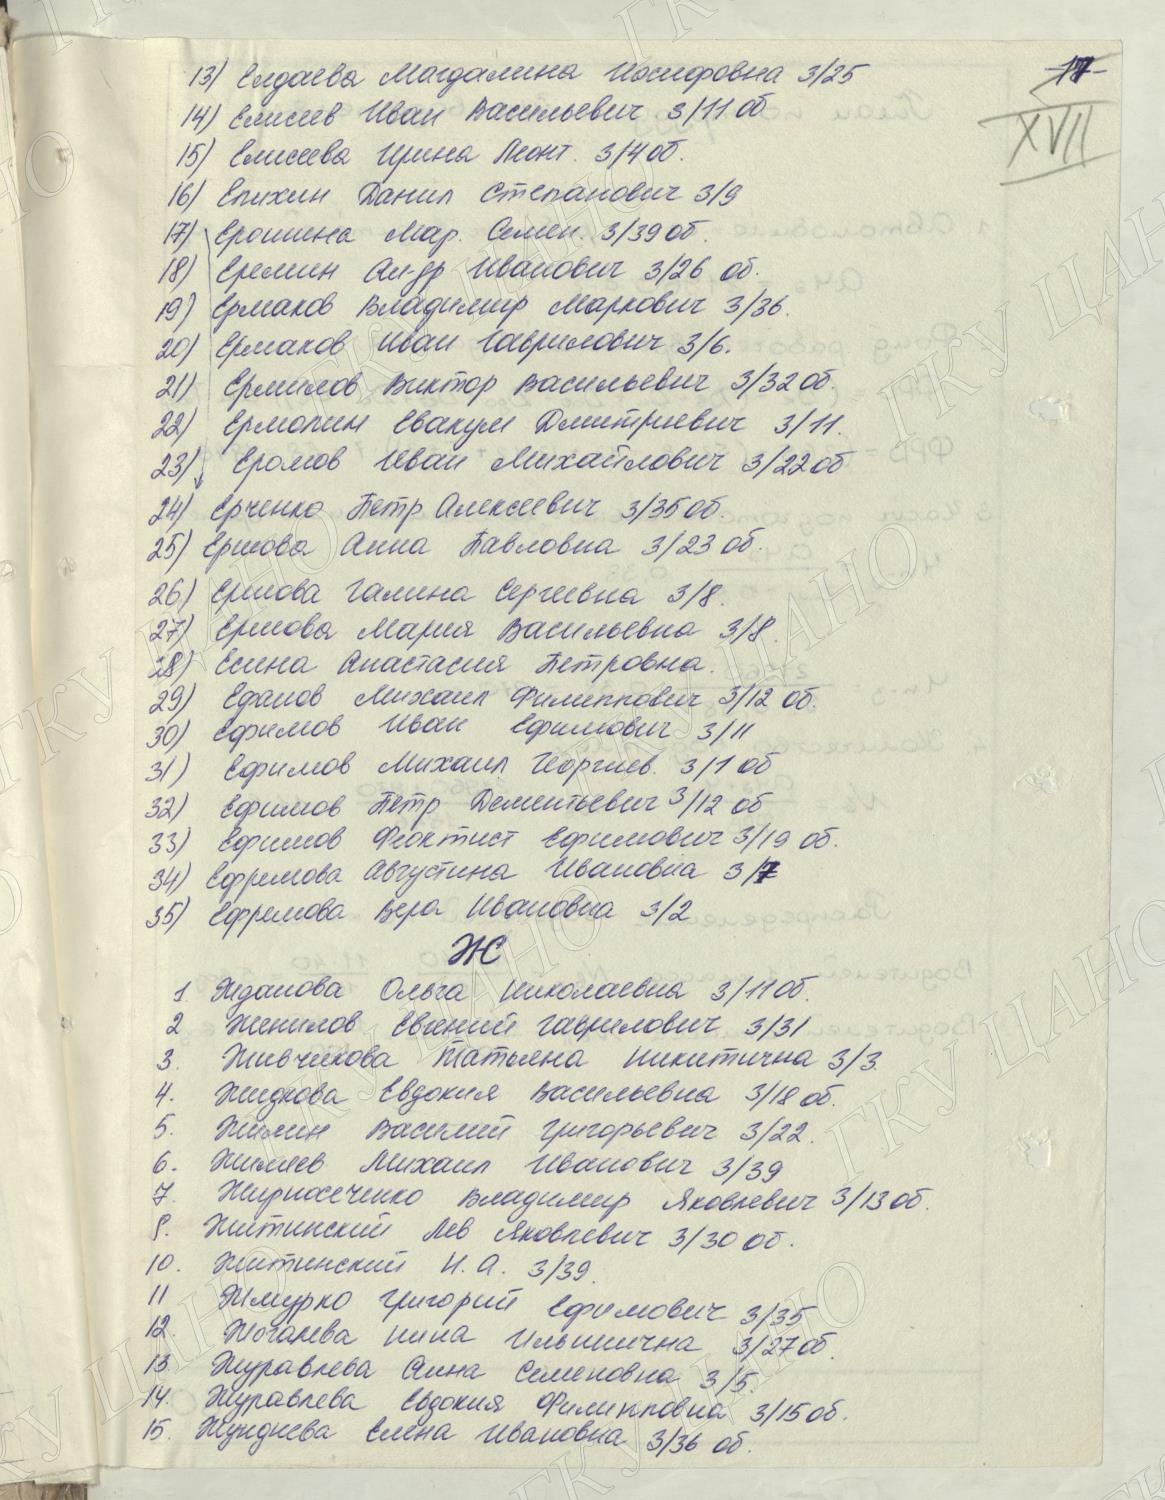 -17-
XVII
13) Елдаева Магдалина Иосифовна 3/25
14) Елисеев Иван Васильевич 3/11 об
15) Елисеева Ирина Леонт. 3/4 об.
16) Епихин Данил Степанович 3/9
17) Ерошина Мар. Семен. 3/39 об.
18) Еремин Ал-др Иванович 3/26 об.
19) Ермаков Владимир Маркович 3/36.
20) Ермаков Иван Гаврилович 3/6.
21) Ермилов Виктор Васильевич 3/32 об.
22) Ермолин Евакум Дмитриевич 3/11.
23) Еромов Иван Михайлович 3/22 об
24) Ерченко Петр Алексеевич 3/35 об.
25) Ершова Анна Павловна 3/23 об.
26) Ершова Галина Сергеевна 3/8.
27) Ершова Мария Васильевна 3/8.
28) Есина Анастасия Петровна.
29) Ефанов Михаил Филиппович 3/12 об.
30) Ефимов Иван Ефимович 3/11
31) Ефимов Михаил Георгиев. 3/1 об
32) Ефимов Петр Дементьевич 3/12 об
33) Ефимов Феоктист Ефимович 3/19 об.
34) Ефремова Августина Ивановна 3/7
35) Ефремова Вера Ивановна 3/2
Ж
1. Жданова Ольга Николаевна 3/11 об.
2 Женилов Евгений Гаврилович 3/31
3. Живчикова Татьяна Никитична 3/3.
4. Жидкова Евдокия Васильевна 3/18 об.
5. Жилин Василий Григорьевич 3/22.
6. Жиляев Михаил Иванович 3/39
7. Владимир Яковлевич 3/13 об.
9. Житинский Лев Яковлевич 3/30 об.
10. Житинский И. А. 3/39.
11 Жмурко Григорий Ефимович 3/35
12. Нина Ильинична 3/27 об.
13. Журавлева Анна Семеновна 3/5.
14. Журавлева Евдокия Филипповна 3/15 об.
15. Елена Ивановна 3/36 об.
ГКУ ЦАНО